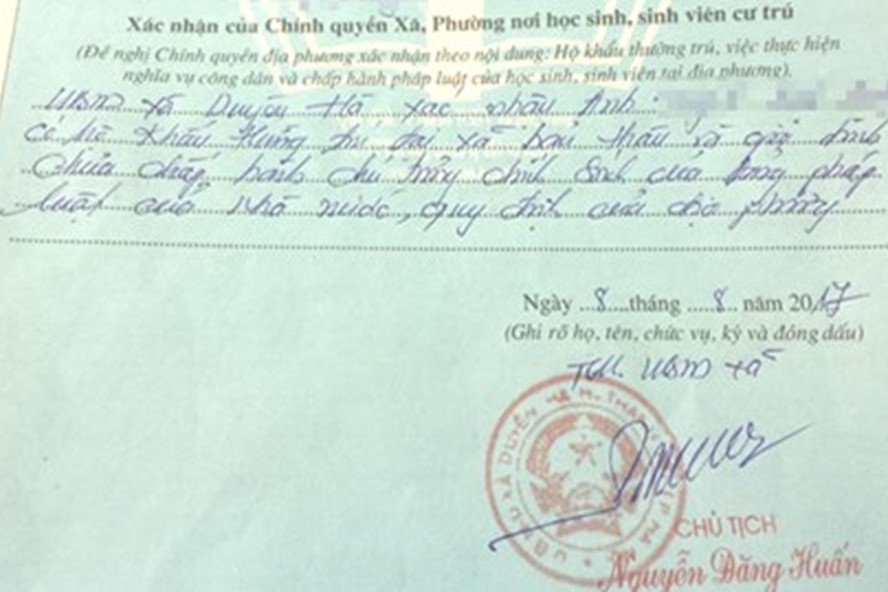 Xác nhận của Chính quyền Xã, Phường nơi học sinh, sinh viên cư trú
(Đề nghị Chính quyền địa phương xác nhận theo nội dung: Hộ khẩu thường trú, việc thực hiện
nghĩa vụ công dân và chấp hành pháp luật của học sinh, sinh viên tại địa phương).
UBND xã Duyên Hà xác nhận Anh:
có hộ khẩu thường trú tại xã bản thân và gia đình
Chưa chấp hành chủ trương chính sách của pháp
luật của Nhà nước, quy định của địa phương
Ngày 8 tháng 8 năm 2017
(Ghi rõ họ, tên, chức vụ, ký và đóng dấu)
TM. UBND xã
U.B.N.D XÃ DUYÊN HÀ H. THANH
CHỦ TỊCH
Nguyễn Đăng Huấn